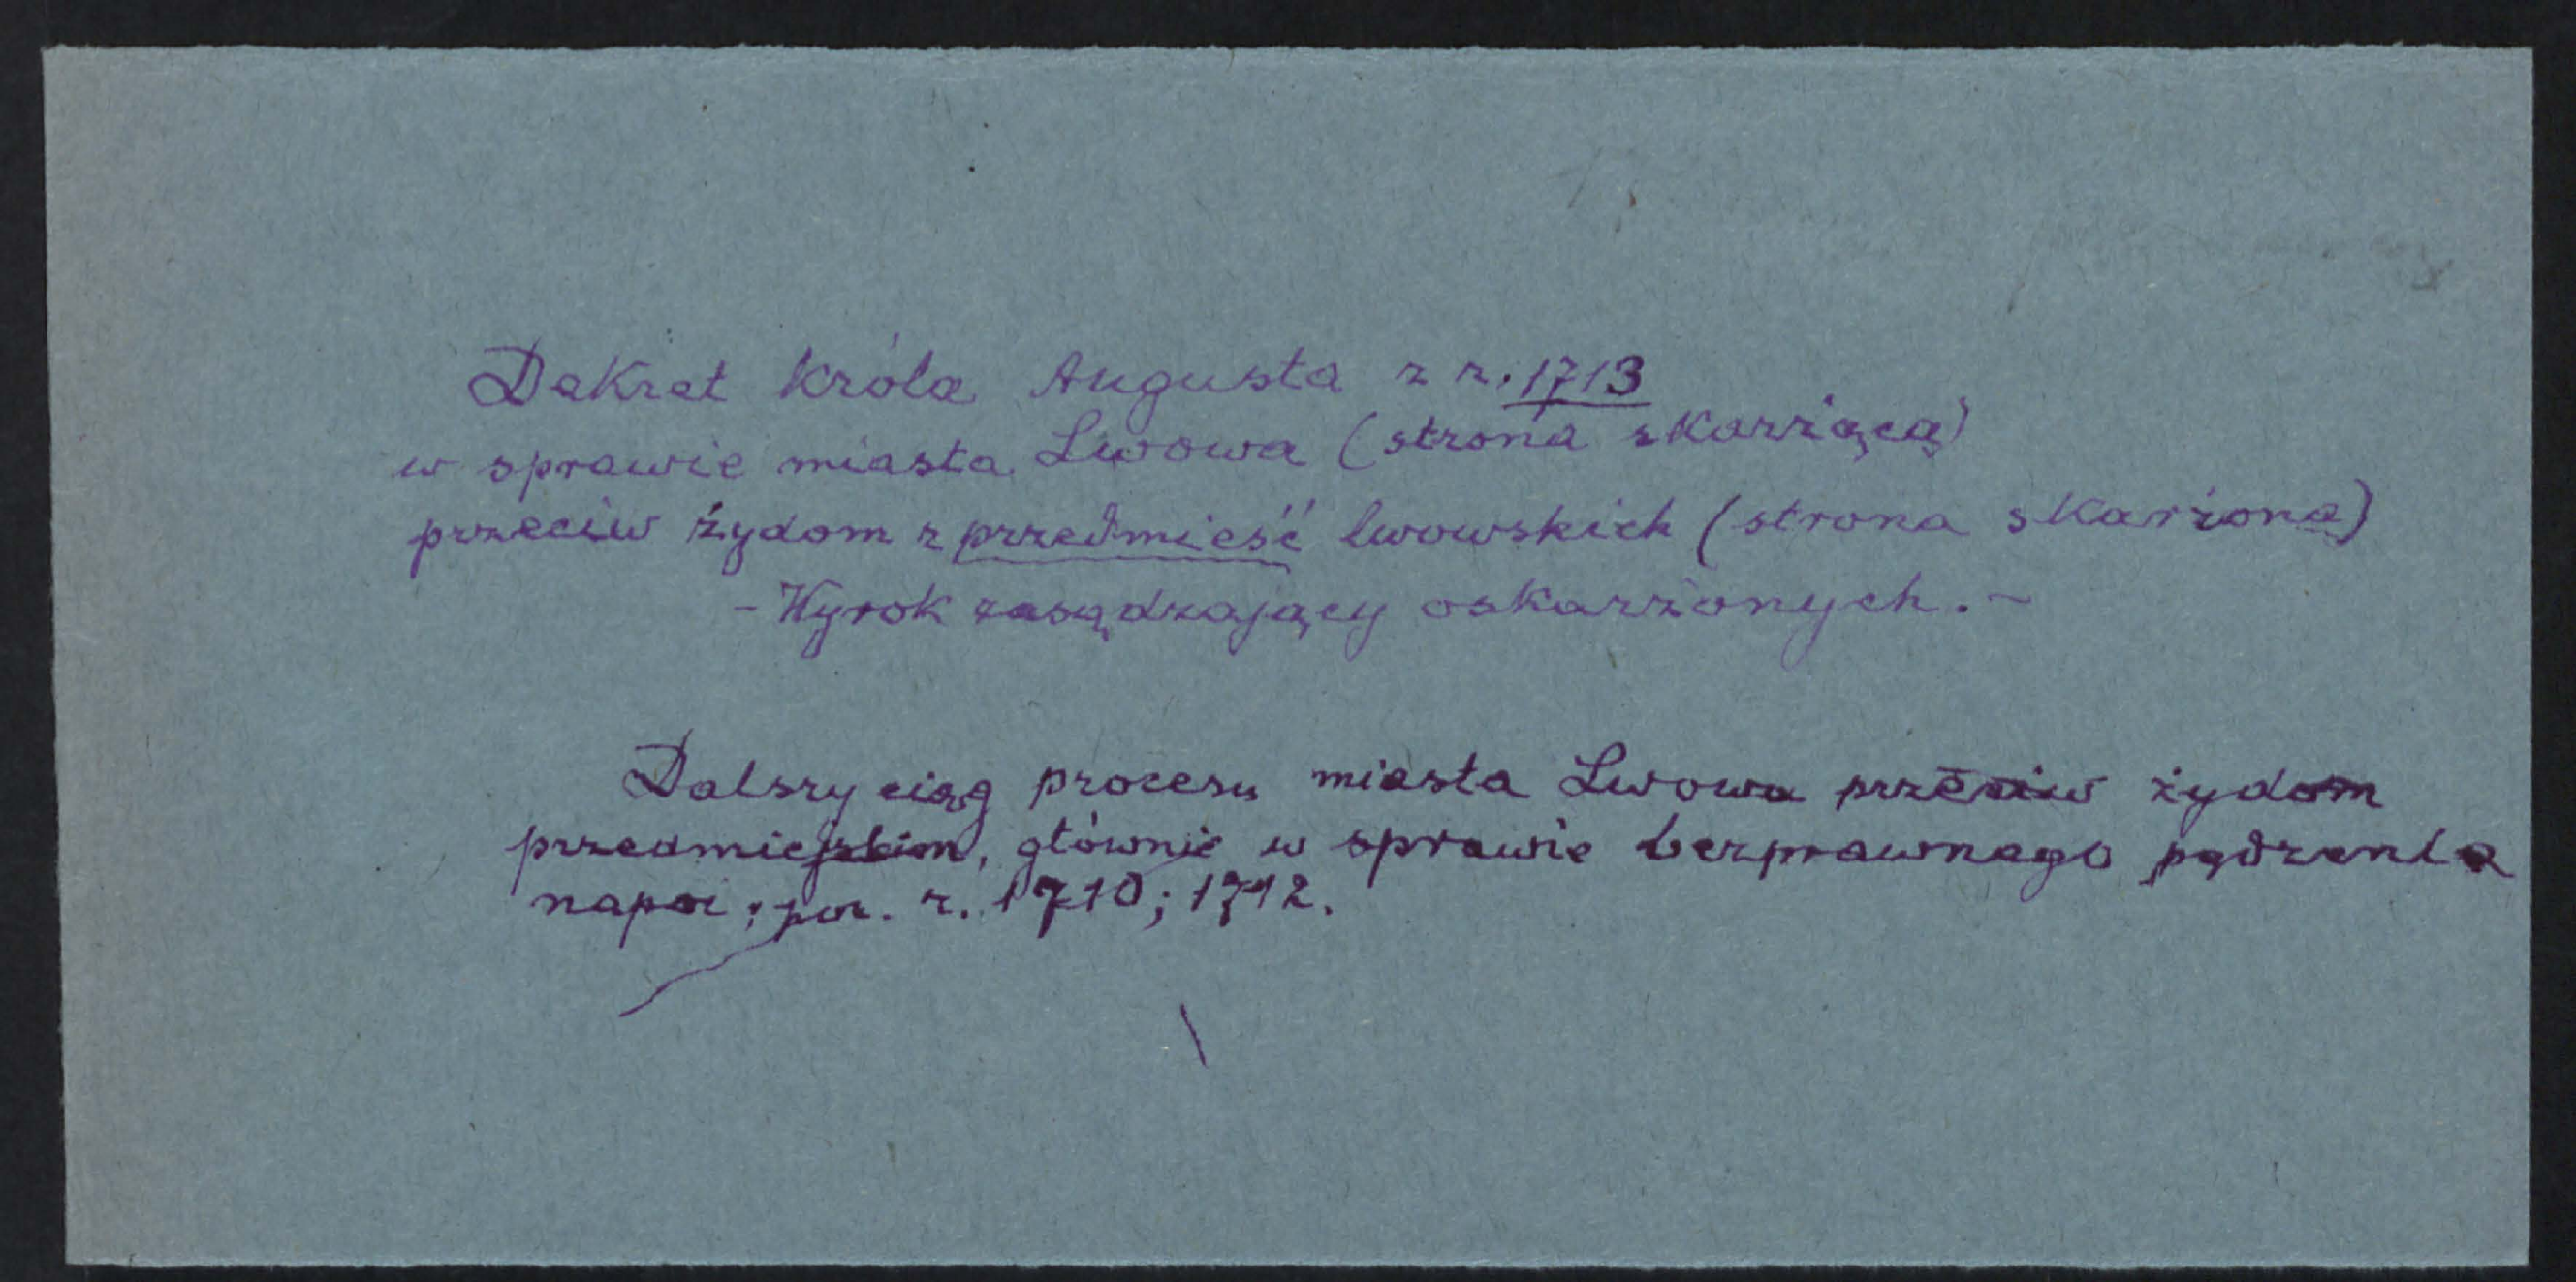 Dekret króla Augusta z r. 1713
w sprawie miasta Lwowa (strona skarżąca)
przeciw żydom z przedmieść lwowskich (strona skarżona)
- Wyrok zasądzający oskarżonych. -
Dalszy ciąg procesu miasta Lwowa przeciw żydom
przedmiejskim, głównie w sprawie bezprawnego pędzenia
napoi; por. r. 1710; 1712.